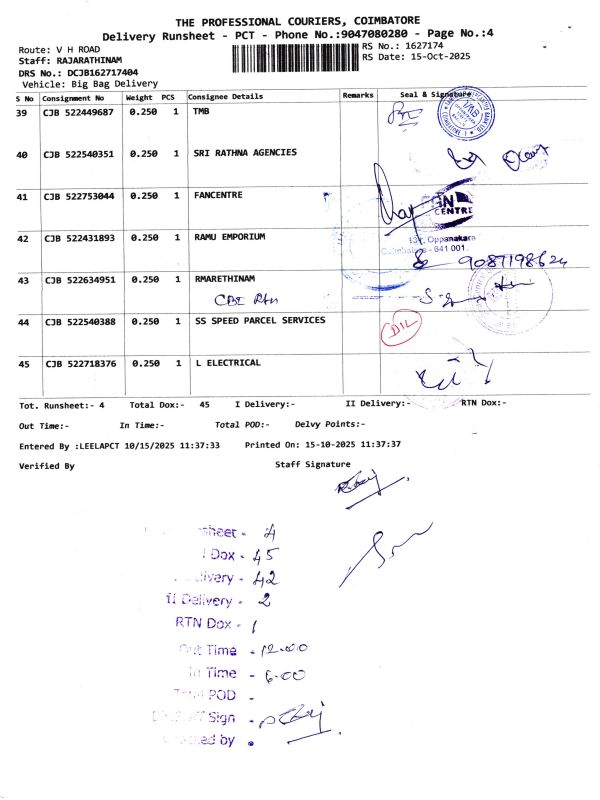 THE PROFESSIONAL COURIERS, COIMBATORE
Delivery Runsheet - PCT - Phone No.:9047080280 - Page No.:4
Route: V H ROAD
RS No.: 1627174
Staff: RAJARATHINAM
RS Date: 15-Oct-2025
DRS No.: DCJB162717404
Vehicle: Big Bag Delivery
S No Consignment No Weight PCS Consignee Details Remarks Seal & Signature
39 CJB 522449687 0.250 1 TMB
40 CJB 522540351 0.250 1 SRI RATHNA AGENCIES
41 CJB 522753044 0.250 1 FANCENTRE
CENTRE
42 CJB 522431893 0.250 1 RAMU EMPORIUM
Oppanakara
Coimbatore - 641 001.
9087198624
43 CJB 522634951 0.250 1 RMARETHINAM
CBE Rtn
44 CJB 522540388 0.250 1 SS SPEED PARCEL SERVICES
D1L
45 CJB 522718376 0.250 1 L ELECTRICAL
Tot. Runsheet:- 4 Total Dox:- 45 I Delivery:- II Delivery:- RTN Dox:-
Out Time:- In Time:- Total POD:- Delvy Points:-
Entered By :LEELAPCT 10/15/2025 11:37:33 Printed On: 15-10-2025 11:37:37
Verified By Staff Signature
sheet - 4
Dox - 45
ivery - 42
II Delivery - 2
RTN Dox - 1
Out Time - 12.00
In Time - 6.00
Total POD -
Sign -
ed by